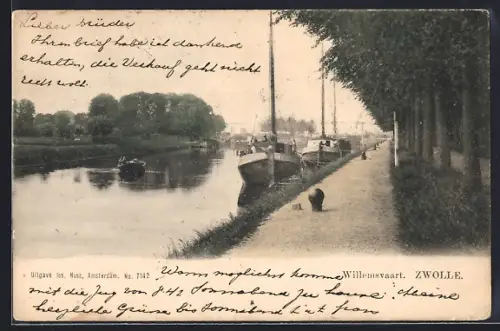 Lieber brüder
Ihren brief habe ich dankend
erhalten, die Verkauf geht nicht
recht woll.
Uitgave Jos. Nuss, Amsterdam. No. 7142
Willemsvaart. ZWOLLE.
Wann moglichst komme
mit die Zug von 8 42 Sonnabend zu hause. Meine
herzliche Grüsse bis Sonnabend